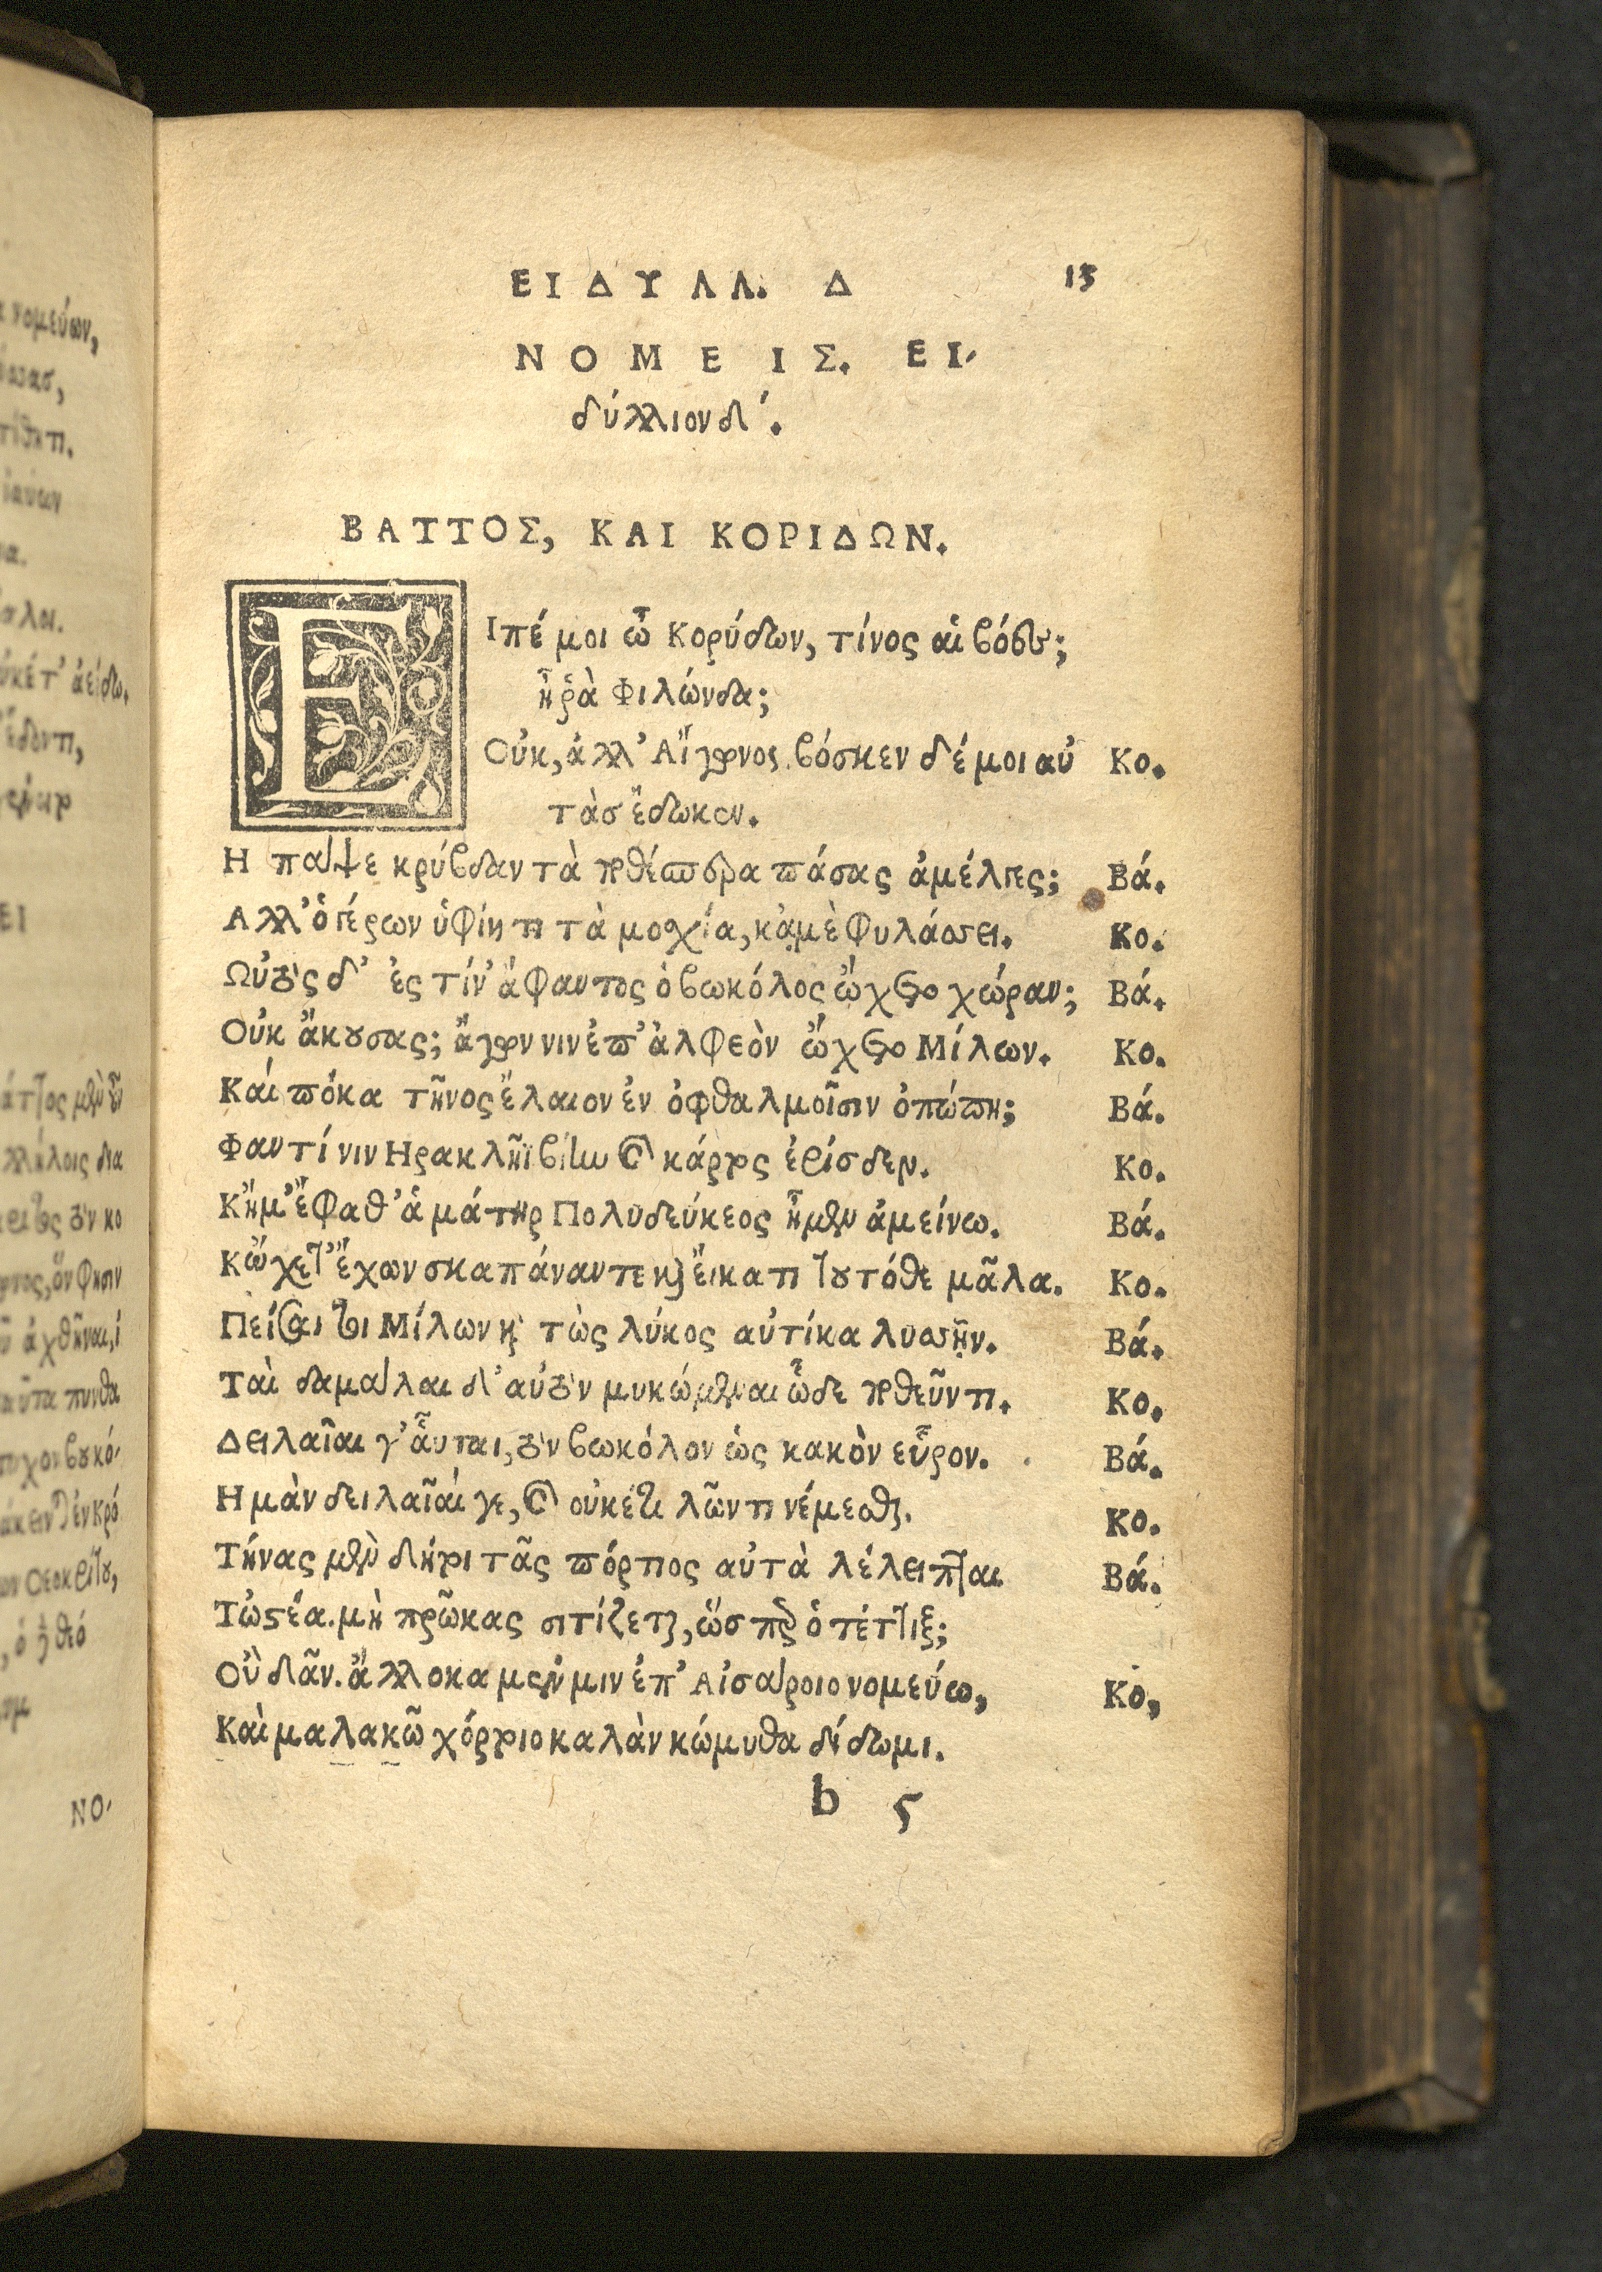 ΕΙΔΥΛΛ. Δ 15
ΝΟΜΕΙΣ. ΕΙ-
δύλλιον δ´.
ΒΑΤΤΟΣ, ΚΑΙ ΚΟΡΙΔΩΝ.
ΕΙπέ μοι ὦ Κορύδων, τίνος αἱ βόες;
ἦ ῥὰ Φιλώνδα;
Οὐκ, ἀλλ' Αἴγωνος. βόσκεν δέ μοι αὐ Κο.
τὰς ἔδωκεν.
Η πάψε κρύβδαν τὰ ποθέσπερα πάσας ἀμέλγες; Βά.
Αλλ' ὁ γέρων ὑφίητι τὰ μοχία, κᾀμὲ φυλάσσει. Κο.
Ωὐτὸς δ' ἐς τίν' ἄφαντος ὁ βωκόλος ᾤχετο χώραν; Βά.
Οὐκ ἄκουσας; ἄγων νιν ἐπ' ἀλφεὸν ᾤχετο Μίλων. Κο.
Καί πόκα τῆνος ἔλαιον ἐν ὀφθαλμοῖσιν ὀπώπη; Βά.
Φαντί νιν Ηρακλῆϊ βίην καὶ κάρτος ἐρίσδεν. Κο.
Κἤμ' ἔφαθ' ἁ μάτηρ Πολυδεύκεος ἦμεν ἀμείνω. Βά.
Κᾤχετ' ἔχων σκαπάναν τε καὶ εἴκατι τουτόθε μᾶλα. Κο.
Πείσαι τοι Μίλων καὶ τὼς λύκος αὐτίκα λυσσῇν. Βά.
Ταὶ δαμάλαι δ' αὐτὸν μυκώμεναι ὧδε ποθεῦντι. Κο.
Δειλαῖαι γ' αὗται, τὸν βωκόλον ὡς κακὸν εὗρον. Βά.
Η μὰν δειλαῖαί γε, καὶ οὐκέτι λῶντι νέμεσθαι. Κο.
Τήνας μὲν δή ρι τᾶς πόρτιος αὐτὰ λέλειπται Βά.
Τὠστέα. μὴ πρῶκας σιτίζεται, ὥσπερ ὁ τέττιξ;
Οὐ δᾶν. ἄλλοκα μὲν μιν ἐπ' Αἰσάροιο νομεύω, Κο,
Καὶ μαλακῶ χόρτοιο καλὰν κώμυθα δίδωμι.
b 5